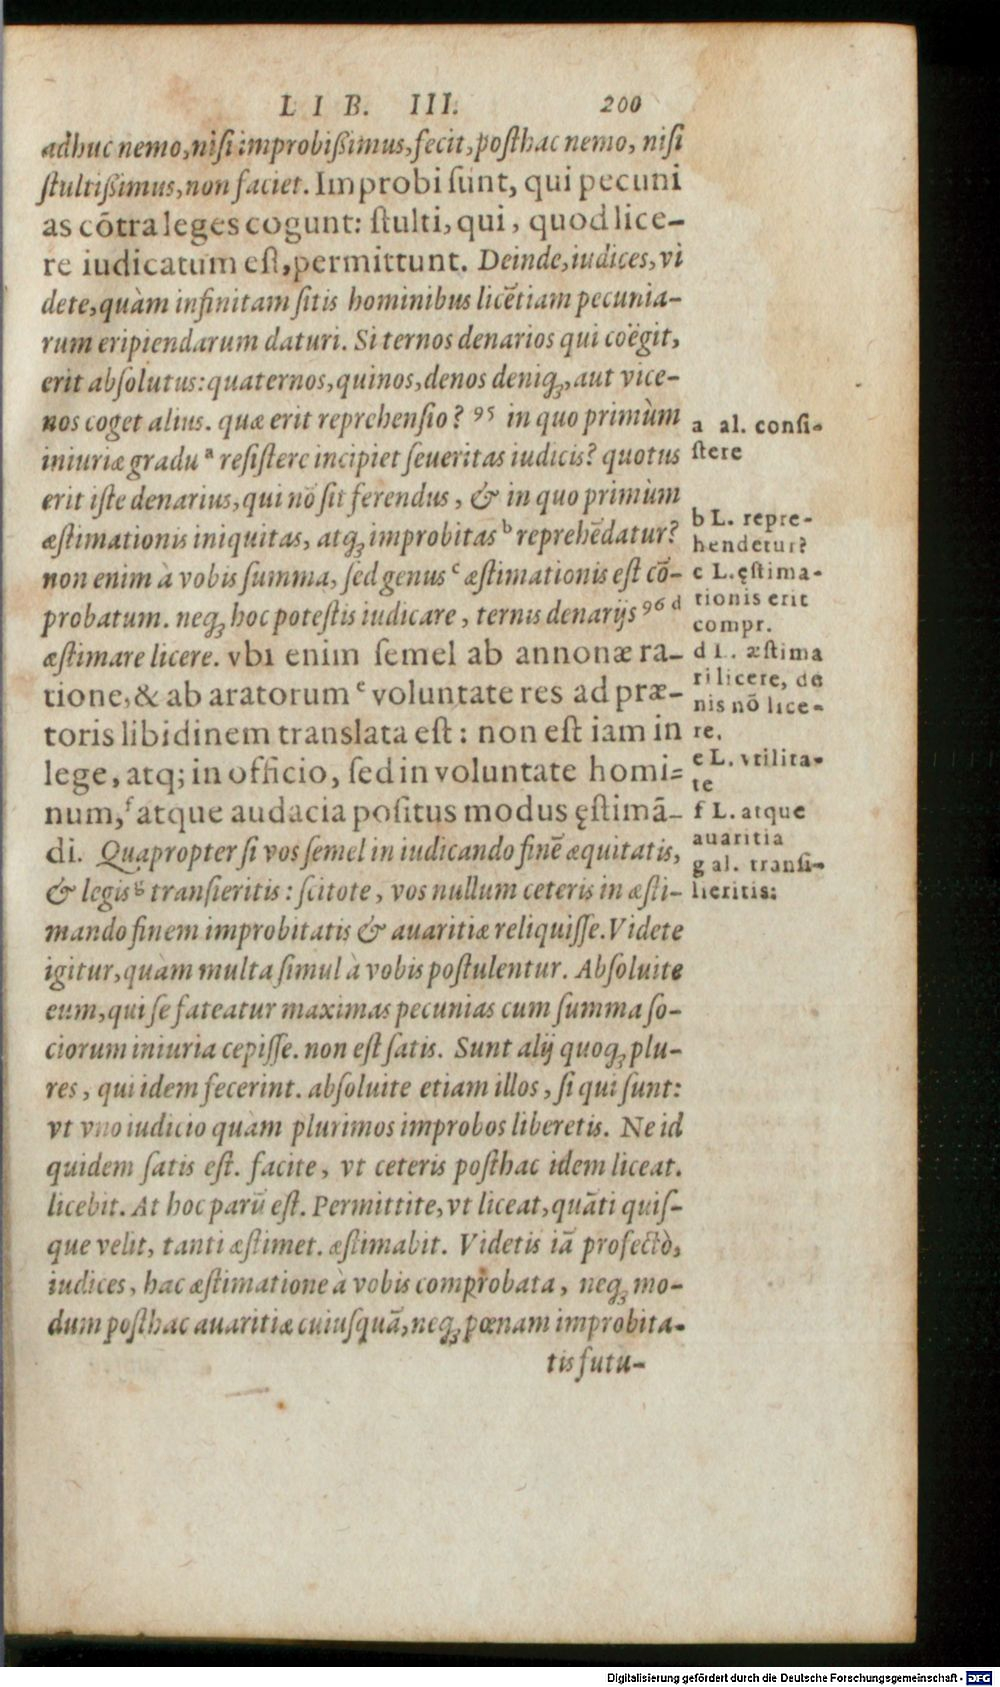 LIB. III. 200
adhuc nemo, nisi improbißimus, fecit, posthac nemo, nisi
stultißimus, non faciet. Improbi sunt, qui pecuni
as cõtra leges cogunt: stulti, qui, quod lice-
re iudicatum est, permittunt. Deinde, iudices, vi
dete, quàm infinitam sitis hominibus licẽtiam pecunia-
rum eripiendarum daturi. Si ternos denarios qui coëgit,
erit absolutus: quaternos, quinos, denos deniqꝫ, aut vice-
nos coget alius. quæ erit reprehensio? 95 in quo primùm
iniuriæ gradu a resistere incipiet seueritas iudicis? quotus
erit iste denarius, qui nõ sit ferendus, & in quo primùm
æstimationis iniquitas, atqꝫ improbitas b reprehẽdatur?
non enim à vobis summa, sed genus c æstimationis est cõ-
probatum. neqꝫ hoc potestis iudicare, ternis denarijs 96 d
æstimare licere. vbi enim semel ab annonæ ra-
tione, & ab aratorum e voluntate res ad præ-
toris libidinem translata est: non est iam in
lege, atq; in officio, sed in voluntate homi-
num, f atque audacia positus modus ęstimã-
di. Quapropter si vos semel in iudicando finẽ æquitatis,
& legis g transieritis: scitote, vos nullum ceteris in æsti-
mando finem improbitatis & auaritiæ reliquisse. Videte
igitur, quàm multa simul à vobis postulentur. Absoluite
eum, qui se fateatur maximas pecunias cum summa so-
ciorum iniuria cepisse. non est satis. Sunt alij quoqꝫ plu-
res, qui idem fecerint. absoluite etiam illos, si qui sunt:
vt vno iudicio quàm plurimos improbos liberetis. Ne id
quidem satis est. facite, vt ceteris posthac idem liceat.
licebit. At hoc parũ est. Permittite, vt liceat, quãti quis-
que velit, tanti æstimet. æstimabit. Videtis iã profectò,
iudices, hac æstimatione à vobis comprobata, neqꝫ mo-
dum posthac auaritiæ cuiusquã, neqꝫ pœnam improbita-
tis futu-
a al. consi-
stere
b L. repre-
hendetur?
c L. ęstima-
tionis erit
compr.
d L. æstima
ri licere, de
nis nõ lice-
re.
e L. vtilita-
te
f L. atque
auaritia
g al. transi-
lieritis:
Digitalisierung gefördert durch die Deutsche Forschungsgemeinschaft - DFG